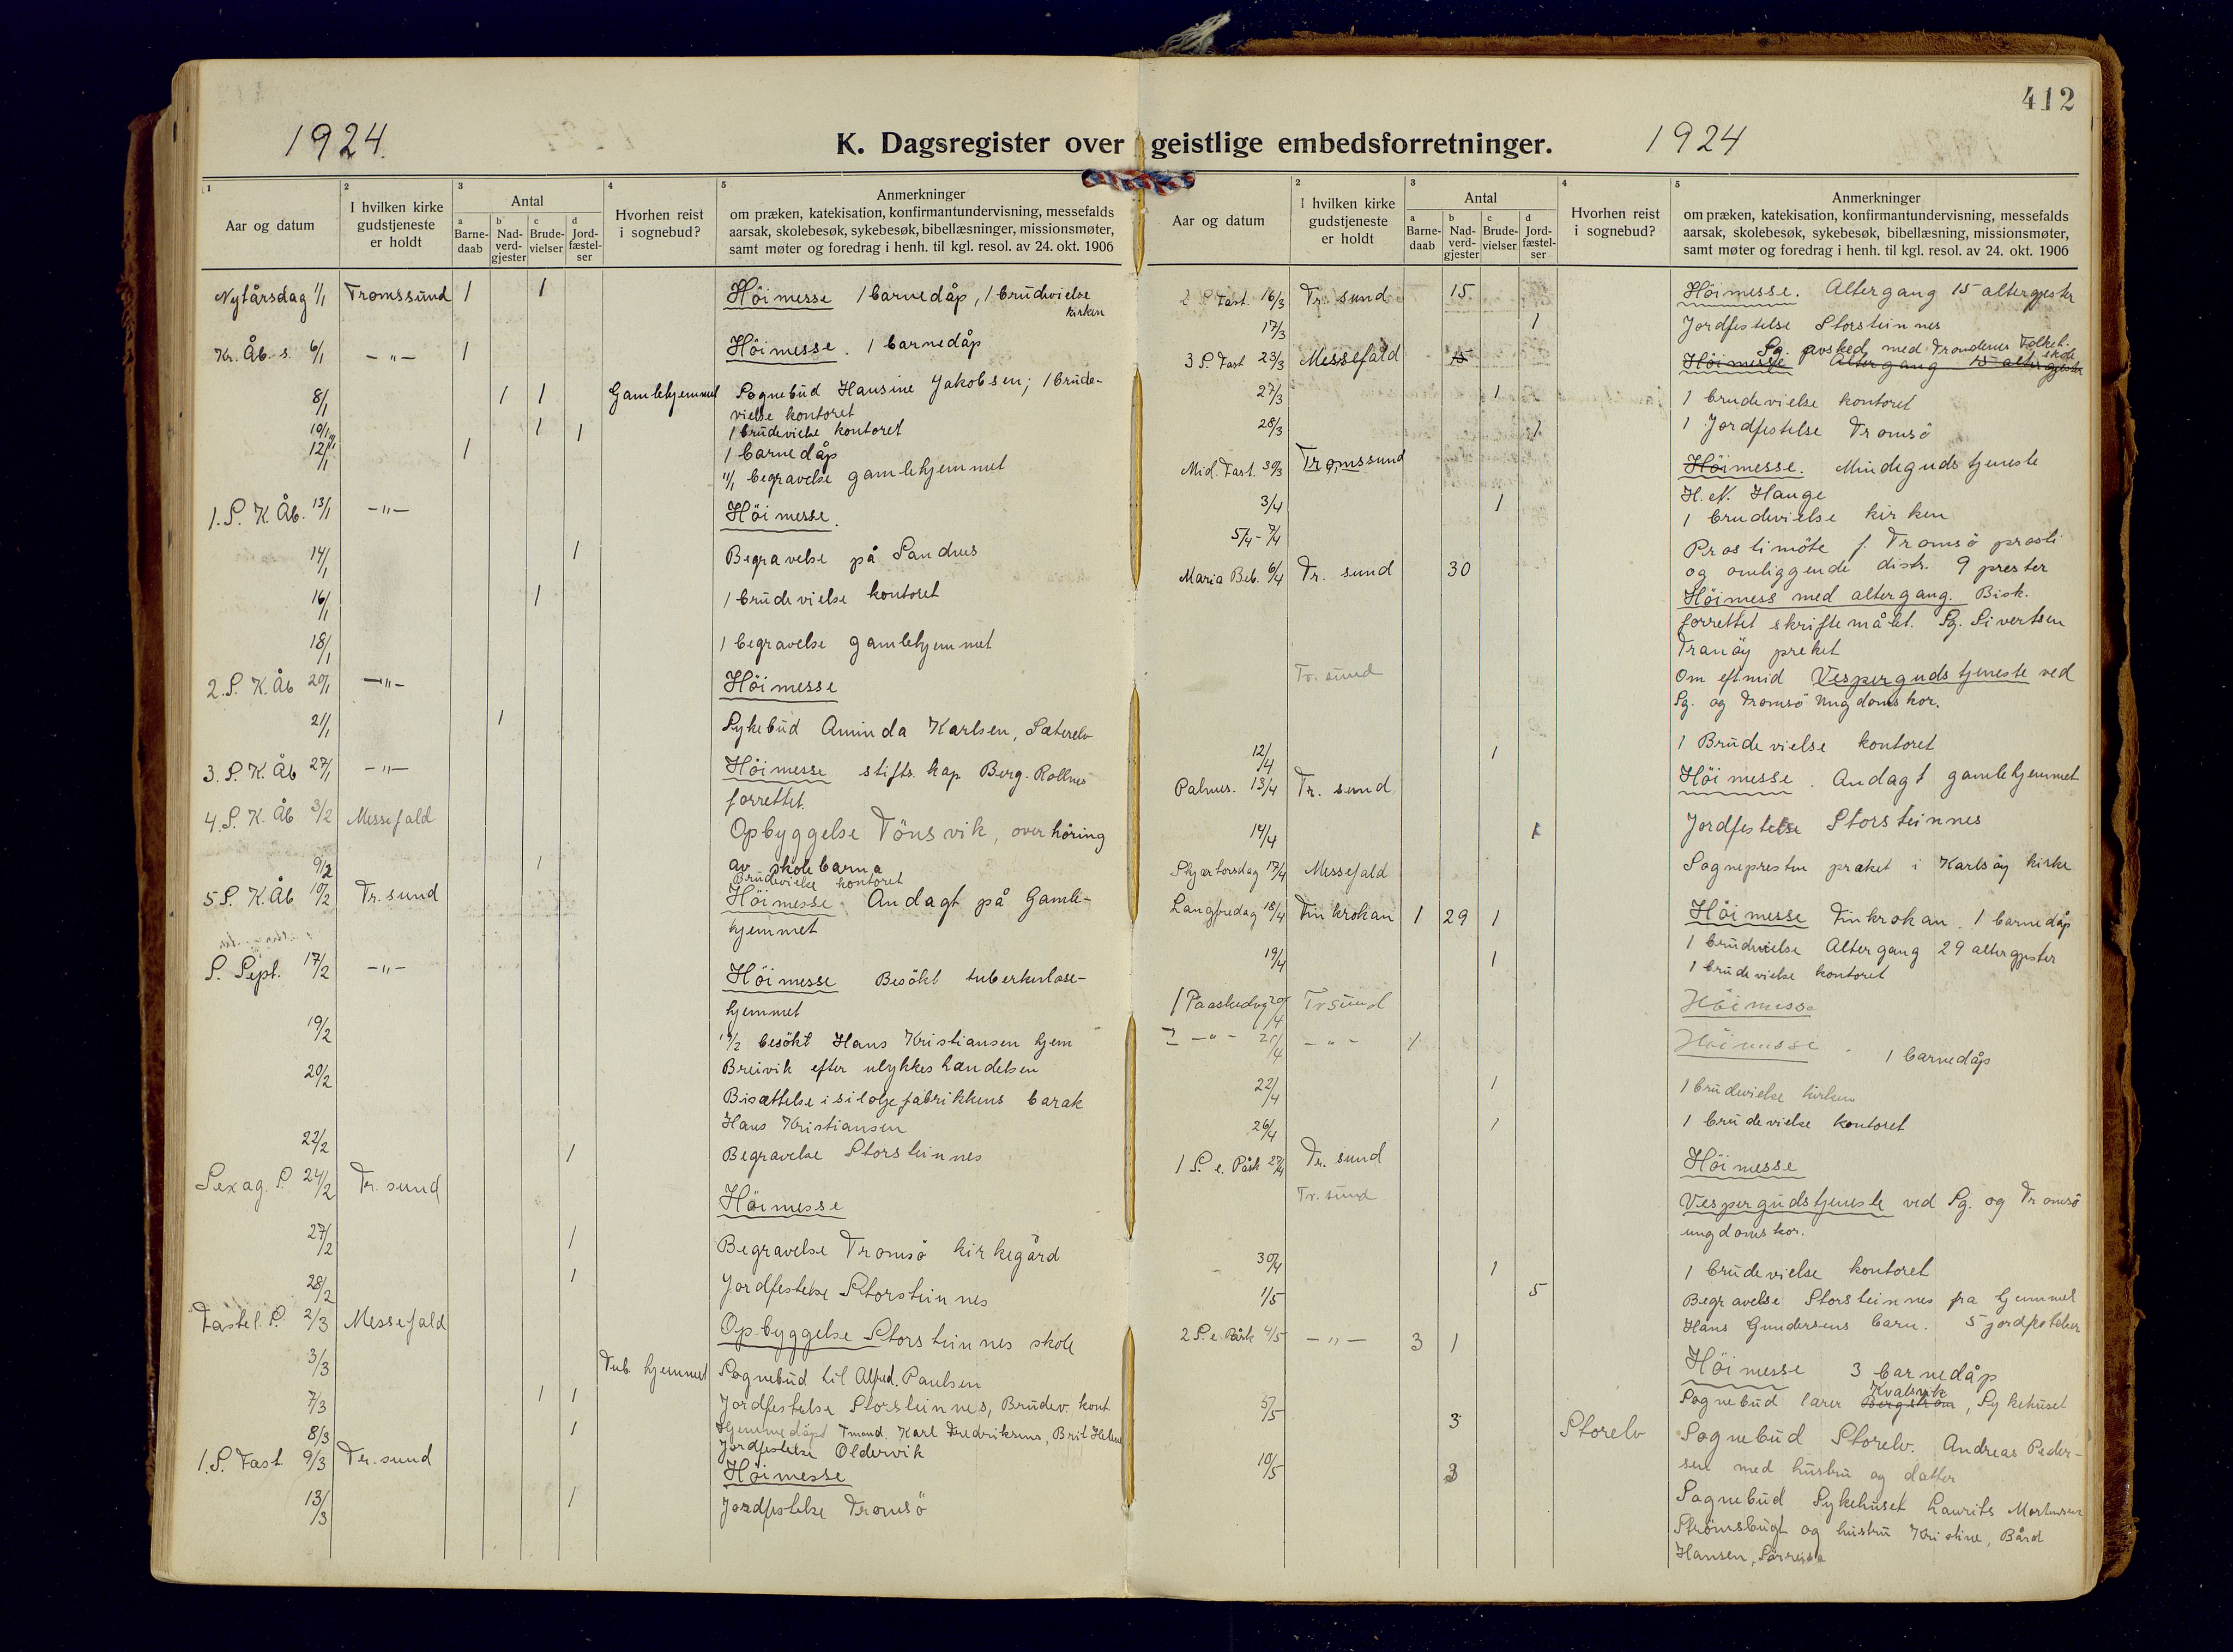 412
1924.
K. Dagsregister over geistlige embedsforretninger.
1924
1 Aar og datum
2 I hvilken kirke gudstjeneste er holdt
3 Antal
a Barne-daab
b Nad-verd-gjester
c Brude-vielser
d Jord-fæstel-ser
4 Hvorhen reist i sognebud?
5 Anmerkninger
om præken, katekisation, konfirmantundervisning, messefalds
aarsak, skolebesøk, sykebesøk, bibellæsninger, missionsmøter,
samt møter og foredrag i henh. til kgl. resol. av 24. okt. 1906
Nytårsdag 1/1 Tromssund 1 1 Höimesse 1 barnedåp, 1 brudevielse
kirken
Kr. Åb. s. 6/1 -"- 1 Höimesse. 1 barnedåp
8/1 1 1 Gamlehjemmet Sognebud Hansine Jakobsen; 1 brude-
vielse kontoret
10/1 11/1 1 1 1 brudevielse kontoret
12/1 1 1 barnedåp
11/1 begravelse gamlehjemmet
1. S. K. Åb. 13/1 -"- Höimesse.
14/1 1 Begravelse på Sandnes
16/1 1 1 brudevielse kontoret
18/1 1 begravelse gamlehjemmet
2. S. K. Åb 20/1 -"- Höimesse
21/1 1 Sykebud Aminda Karlsen, Sæterelv
3. S. K. Åb 27/1 -"- Höimesse stifts. kap. Berg-Rollnes
forrettet.
4. S. K. Åb 3/2 Messefald Opbyggelse Tönsvik, overhöring
av skolebarna
9/2 1 Brudevielse kontoret
5 S. K. Åb 10/2 Tr. sund Höimesse. Andagt på Gamle-
hjemmet
S. Sept. 17/2 -"- Höimesse Besökt tuberkulose-
hjemmet
19/2 19/2 besökt Hans Kristiansen hjem
Breivik efter ulykkeshændelsen
20/2 Bisættelse i sildoljefabrikkens barak
Hans Kristiansen
22/2 1 Begravelse Storsteinnes
Sexag. S. 24/2 Tr. sund Höimesse
27/2 1 Begravelse Tromsö kirkegård
28/2 1 Jordfestelse Storsteinnes
Fastel. S. 2/3 Messefald Opbyggelse Storsteinnes skole
3/3 Tub. hjemmet Sognebud til Alfred Paulsen
7/3 1 1 Jordfestelse Storsteinnes, Brudev. kont
8/3 1 Hjemmedöpt Karl Fredriksens, Brit Helene
Jordfestelse Oldervik
1. S. Fast 9/3 Tr. sund Höimesse
13/3 1 Jordfestelse Tromsö
Aar og datum
2 I hvilken kirke gudstjeneste er holdt
3 Antal
a Barne-daab
b Nad-verd-gjester
c Brude-vielser
d Jord-fæstel-ser
4 Hvorhen reist i sognebud?
5 Anmerkninger
om præken, katekisation, konfirmantundervisning, messefalds
aarsak, skolebesøk, sykebesøk, bibellæsning, missionsmøter,
samt møter og foredrag i henh. til kgl. resol. av 24. okt. 1906
2 S. Fast. 16/3 Tr. sund 15 Höimesse. Altergang 15 altergjester
17/3 1 Jordfestelse Storsteinnes
Sg. avsked med Trondenes Folkeh. skole
3 S. Fast 23/3 Messefald 15 Höimesse Altergang 15 altergjester
27/3 1 1 brudevielse kontoret
28/3 1 1 Jordfestelse Tromsö
Mid. Fast. 30/3 Tromssund Höimesse. Mindegudstjeneste
H. N. Hauge
3/4 1 1 brudevielse kirken
5/4 - 7/4 Prostimöte f. Tromsö prosti
og omliggende distr. 9 prester
Maria Beb. 6/4 Tr. sund 30 Höimess med altergang. Bisk.
forrettet skriftemålet. Sg. Sivertsen
Tranöy preket
Tr. sund Om eftmid Vespergudstjeneste ved
Sg. og Tromsö Ungdomskor.
12/4 1 1 Brudevielse kontoret
Palmes. 13/4 Tr. sund Höimesse. Andagt gamlehjemmet
14/4 1 Jordfestelse Storsteinnes
Skjærtorsdag 17/4 Messefald Sognepresten præket i Karlsöy kirke
Langfredag 18/4 Finkrokan 1 29 1 Höimesse Finkrokan. 1 barnedåp
1 brudevielse Altergang 29 altergjester
19/4 1 1 brudevielse kontoret
1 Paaskedag 20/4 Tr sund Höimesse
2 -"- 21/4 -"- 1 Höimesse. 1 barnedåp
22/4 1 1 brudevielse kirken
26/4 1 1 brudevielse kontoret
1 S. e. Påsk 27/4 Tr. sund Höimesse
Tr. sund Vespergudstjeneste ved Sg. og Tromsö
ungdomskor.
30/4 1 1 brudevielse kontoret
1/5 5 Begravelse Storsteinnes fra hjemmet
Hans Gundersens barn. 5 jordfestelser
2 S. e. Påsk 4/5 -"- 3 1 Höimesse 3 barnedåp
Kvalsvik
Sognebud Bergström, Sykehuset
5/5 3 Storelv Sognebud Storelv. Andreas Peder-
sen med hustru og datter
10/5 3 Sognebud Sykehuset Laurits Mortensen
Strömsbugt og hustru Kristine, Bård
Hansen,